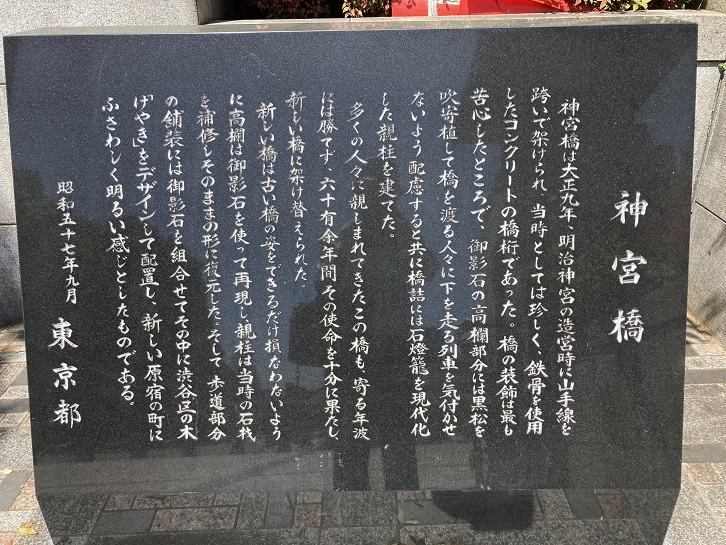 神宮橋
神宮橋は大正九年、明治神宮の造営時に山手線を
跨いで架けられ、当時としては珍しく、鉄骨を使用
したコンクリートの橋桁であった。橋の装飾は最も
苦心したところで、御影石の高欄部分には黒松を
吹寄植して橋を渡る人々に下を走る列車を気付かせ
ないよう配慮すると共に橋詰には石燈籠を現代化
した親柱を建てた。
多くの人々に親しまれてきたこの橋も、寄る年波
には勝てず、六十有余年間その使命を十分に果たし、
新しい橋に架け替えられた。
新しい橋は古い橋の姿をできるだけ損なわないよう
に高欄は御影石を使って再現し、親柱は当時の石材
を補修しそのままの形に復元した。そして歩道部分
の舗装には御影石を組合せてその中に渋谷区の木
「けやき」をデザインして配置し、新しい原宿の町に
ふさわしく明るい感じとしたものである。
昭和五十七年九月 東京都